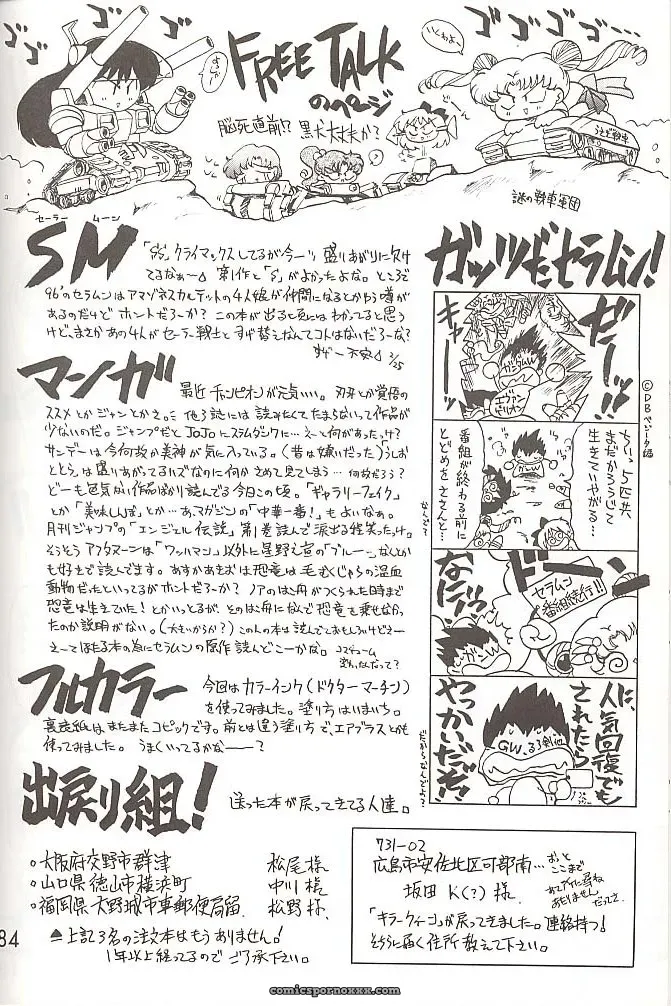 ゴゴゴ
ゴゴゴ
FREE TALK
のページ
脳死直前!? 黒犬大丈夫か?
いくわよー
謎の戦車軍団
セーラー ムーン
SM
「SS」クライマックスしてるが今一つ盛りあがりに欠け
てるなぁ〜 第1作と「S」がよかったよな。ところで
96'のセラムンはアマゾネスカルテットの4人娘が仲間になるとかゆう噂が
あるのだけど ホントだろーか? この本が出る頃にはわかってると思う
けど、まさかあの4人がセーラー戦士とすげ替えなんてコトはないだろーな?
2/25
マンガ
最近チャンピオンが元気いい。刃牙とか覚悟の
ススメとかジャンとかさ。 他3誌には読みたくてたまらないって作品が
少ないのだ。ジャンプだとJoJoにスラムダンクに…えーと何があったっけ?
サンデーは今何故か美神が気に入っている。(昔は嫌いだった)うしお
ととらは盛りあがってるハズなのに何かさめて見てしまう…何故だろう?
どーも色気ない作品ばかり読んでる今日この頃。「ギャラリーフェイク」
とか「美味しんぼ」とか…あ、マガジンの「中華一番!」もよいなぁ。
月刊ジャンプの「エンジェル伝説」第1巻読んで涙出る程笑ったっけ。
そうそうアフタヌーンは「ワッハマン」以外に星野之宣の「ブルー
も好きで読んでます。あすかあきおは恐竜は毛むくじゃらの温血
動物だったといってるがホントだろーか? ノアのはこ舟がつくられた時まで
恐竜は生きていた!とかいっとるが、そのはこ舟になんで恐竜を乗せなかっ
たのか説明がない。(大きいからか?)この人の本は読んでておもしろいけどさー
えーてほたる本の為にセラムンの原作読んどこーかな。
フルカラー
今回はカラーインク(ドクターマーチン)
を使ってみました。塗り方はいまいち。
裏表紙はまたまたコピックです。前とは違う塗り方で、エアブラスとかも
使ってみました。 うまくいってるかな———?
出戻り組!
送った本が戻ってきてる人達。
○大阪府交野市群津 松尾様
○山口県徳山市横浜町 中川様
○福岡県大野城市東郵便局留 松野様
▲上記3名の注文本はもうありません!
1年以上経ってるので ご了承下さい。
84
ガッツだセラムン!
ゼーッ!!
キャー
エヴァン
ゲリオン
©DBベジータ編
ちぃっ、5匹共
まだかろうじて
生きていやがる…
番組が終わる前に
とどめをささんと…
なんで?
ドーン
セラムン
番組続行!!
なにィッ!
人気回復でも
されたら
やっかいだぞ!
GW、るろ剣他
だからなんでよ?
731-02
広島市安佐北区可部南…
おっと
ここまで
坂田 K(?) 様
「キラークィーン」が戻ってきました。連絡待つ!
そちらに届く住所教えて下さい。
comicspornoxxx.com